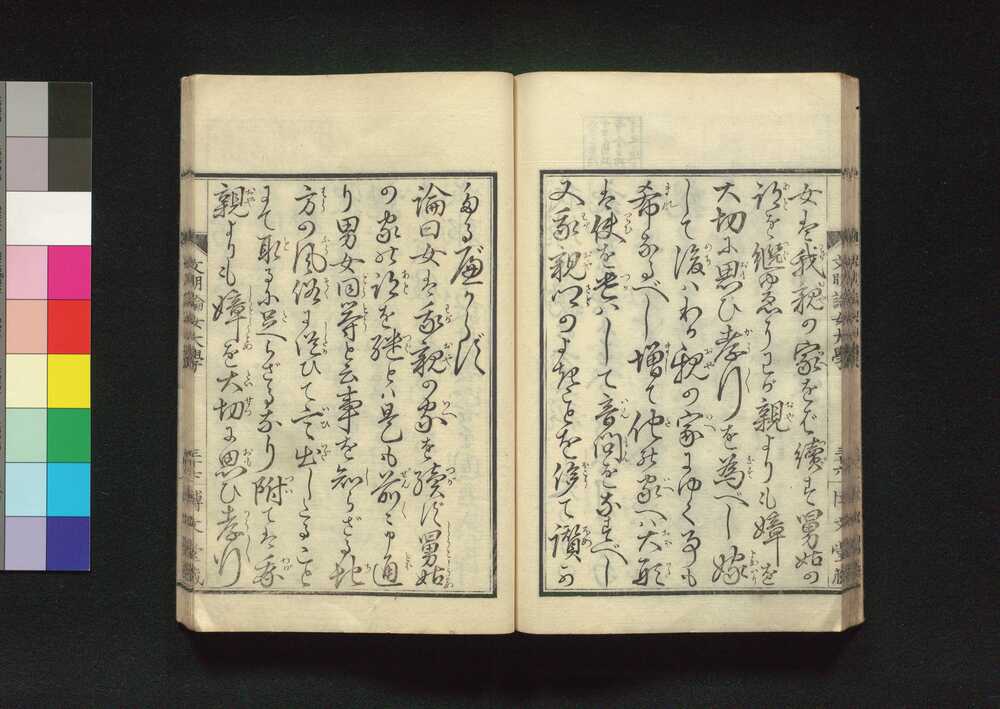 女は我親の家をば續ず舅姑の
跡を継ゆゑにわが親よりも嫜を
大切に思ひ孝行を為べし嫁
して後ハわが親の家にゆく事も
希なるべし増て他の家へハ大形
は使を遣ハして音問をなすべし
又我親里のよきことを侈て讃か
たる可からず
論曰女は我親の家を續ず舅姑
の家の跡を継とハ是も前に
り男女同等と云事を知らざる地
方の風俗に従ひて言出したること
にて取るに足らざるなり附ては我
親よりも嫜を大切に思ひ孝行
文明論女大學
博文堂藏